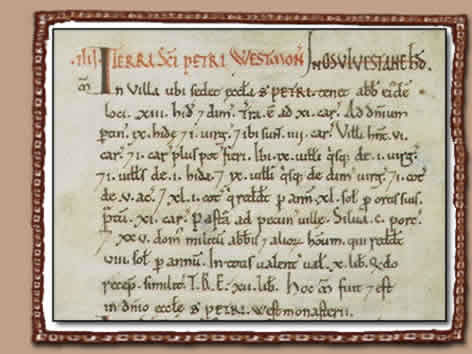 .IIII. TERRA SC̄I PETRI WESTMON̄ IN OSVLVESTANE HD̄.
M̄ In Villa ubi sedet æccła S̄ PETRI. tenet abb̄ eiđe
loci. XIII. hiđ 7 dim̄. Tr̄a. ē ad XI. car̄. Ad dn̄ium
ptin̄. IX. hidę 7 I. uirg̃. 7 ibi sunt. IIII. car̄. Vilłi hn̄t. VI.
car̄. 7 I. car̄ plus pot̄ fieri. Ibi. IX. uilłi q̄sq̨ de. I. uirg̃.
7 I. uilłs de. I. hida. 7 IX. uilłi q̄sq̨ de dim̄ uirg̃. 7 I. cot̄
de. V. ac̄. 7 XL.I. cot̄ q̄ redđt p ann̄. XL. soł p ortis suis.
P̃tū. XI. car̄. Pasta̅ ad pecun̄ uillę. Silua. C. porc̄.
7 XXV. dom̄ militū abb̄is 7 alioꝝ hōum. qui redđt
VIII. soł p annū. In totis ualent̄ uał. X. lib̄. Q̄do
recep̄. similit̄. T.R.E. XII. lib̄. Hoc M̄ fuit 7 est
in dn̄io æccłę S̄ PETRI. westmonasterii.